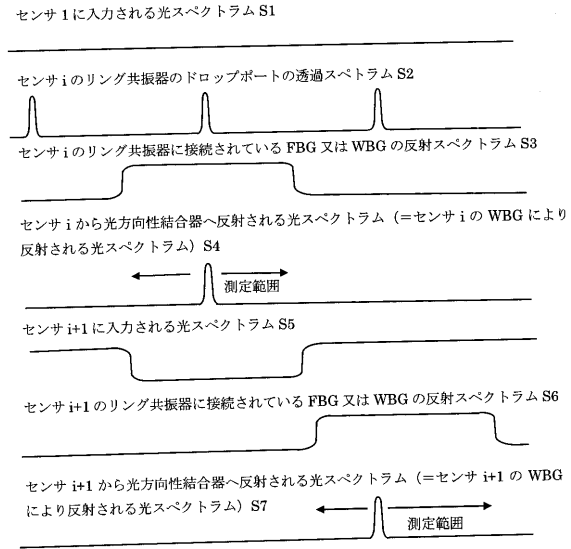 センサ 1 に入力される光スペクトラム S1
センサ i のリング共振器のドロップポートの透過スペトラム S2
センサ i のリング共振器に接続されている FBG 又は WBG の反射スペクトラム S3
センサ i から光方向性結合器へ反射される光スペクトラム（＝センサ i の WBG により
反射される光スペクトラム）S4
測定範囲
センサ i+1 に入力される光スペクトラム S5
センサ i+1 のリング共振器に接続されている FBG 又は WBG の反射スペクトラム S6
センサ i+1 から光方向性結合器へ反射される光スペクトラム（＝センサ i+1 の WBG
により反射される光スペクトラム）S7
測定範囲